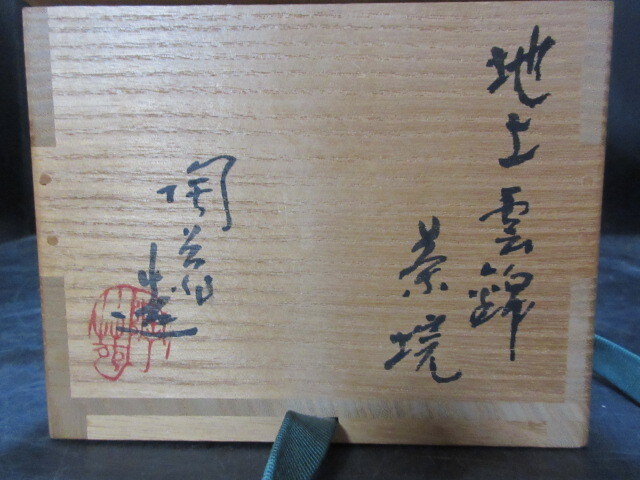 地上雲錦
茶垸
陶葊造